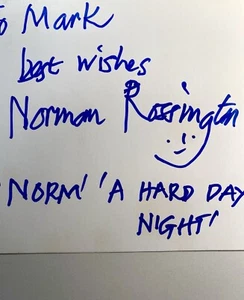 To Mark
best wishes
Norman Rossington
'NORM' 'A HARD DAY
NIGHT'